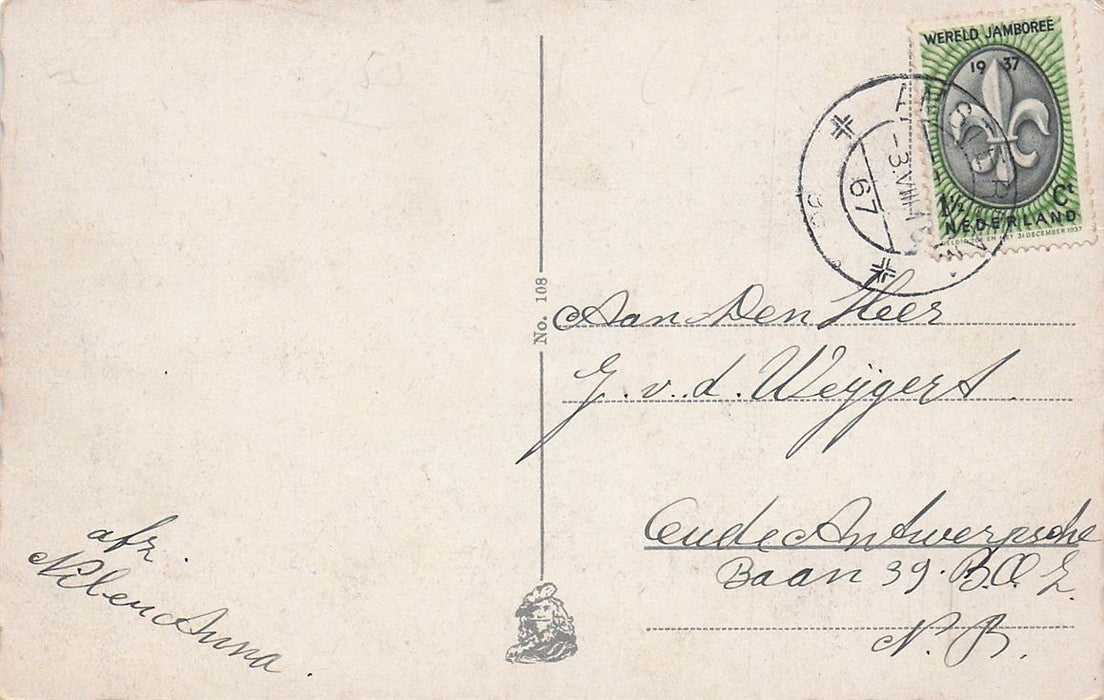 WERELD JAMBOREE
1937
1½ Ct
NEDERLAND
GELDIG TOT EN MET 31 DECEMBER 1937
-3.VIII
67
No. 108
Aan Den Heer
J. v. d. Weijgert
Oude Antwerpsche
Baan 39. B.O.Z.
N. B.
afz.
Anna